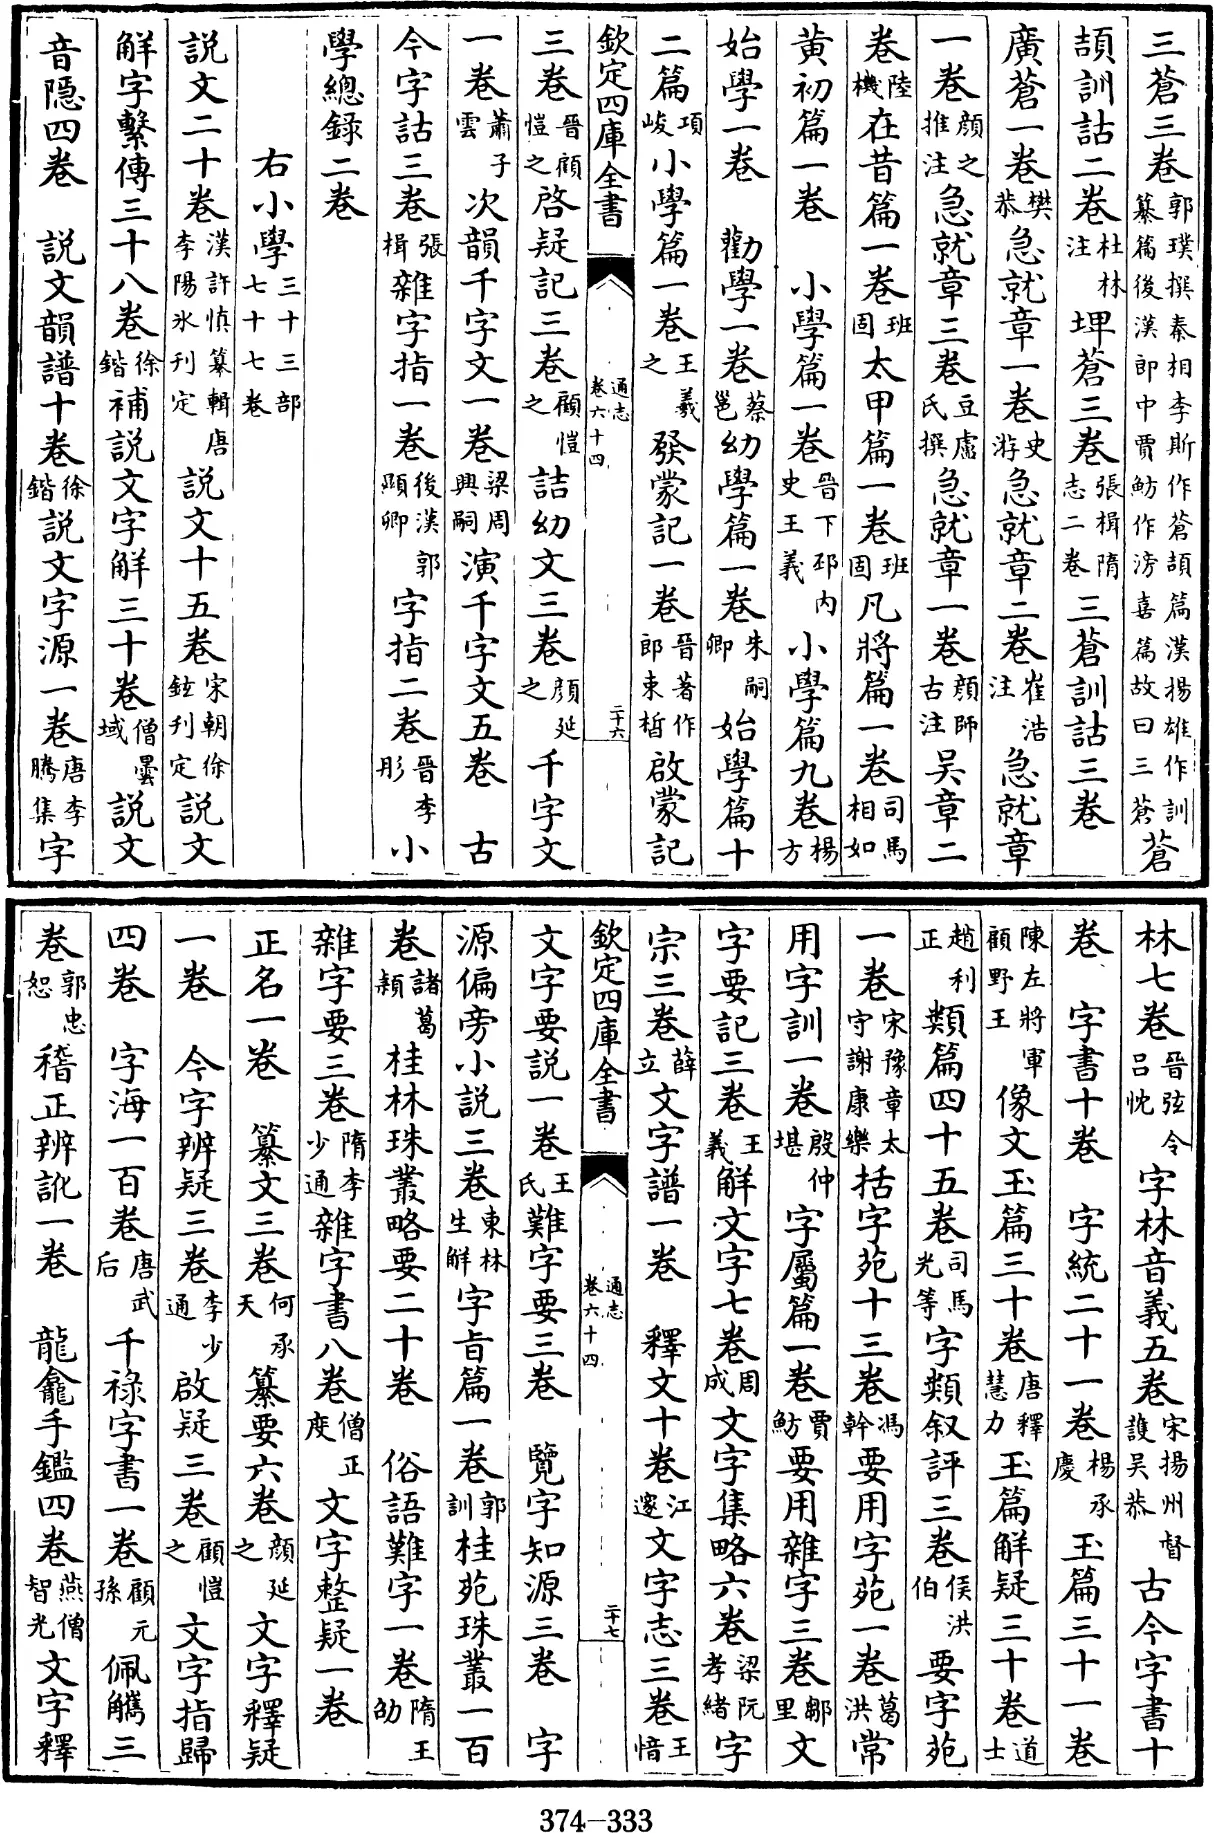 三蒼三卷郭璞撰秦相李斯作蒼頡篇漢揚雄作訓纂篇後漢郎中賈魴作滂喜篇故曰三蒼蒼
頡訓詁二卷杜林注埤蒼三卷張揖隋志二卷三蒼訓詁三卷
廣蒼一卷樊恭急就章一卷史游急就章二卷崔浩注急就章
一卷顏之推注急就章三卷豆盧氏撰急就章一卷顏師古注吳章二
卷陸機在昔篇一卷班固太甲篇一卷班固凡將篇一卷司馬相如
黃初篇一卷小學篇一卷晉下邳內史王義小學篇九卷楊方
始學一卷勸學一卷蔡邕幼學篇一卷朱嗣卿始學篇十
二篇項峻小學篇一卷王羲之發蒙記一卷晉著作郎束晳啟蒙記
欽定四庫全書
通志
卷六十四
二十六
三卷晉顧愷之啓疑記三卷顧愷之詰幼文三卷顏延之千字文
一卷蕭子雲次韻千字文一卷梁周興嗣演千字文五卷古
今字詁三卷張揖雜字指一卷後漢郭顯卿字指二卷晉李彤小
學總錄二卷
右小學三十三部七十七卷
説文二十卷漢許慎纂輯唐李陽氷刊定説文十五卷宋朝徐鉉刊定説文
解字繫傳三十八卷徐鍇補説文字解三十卷僧曇域説文
音隠四卷説文韻譜十卷徐鍇説文字源一卷唐李騰集字
林七卷晉弦令呂忱字林音義五卷宋揚州督護吳恭古今字書十
卷字書十卷字統二十一卷楊承慶玉篇三十一卷
陳左將軍顧野王像文玉篇三十卷唐釋慧力玉篇解疑三十卷道士
趙利正類篇四十五卷司馬光等字類叙評三卷侯洪伯要字苑
一卷宋豫章太守謝康樂括字苑十三卷馮幹要用字苑一卷葛洪常
用字訓一卷殷仲堪字屬篇一卷賈魴要用雜字三卷鄒里文
字要記三卷王義解文字七卷周成文字集略六卷梁阮孝緒字
宗三卷薛立文字譜一卷釋文十卷江邃文字志三卷王愔
欽定四庫全書
通志
卷六十四
二十七
文字要説一卷王氏難字要三卷覽字知源三卷字
源偏旁小説三卷東林生解字旨篇一卷郭訓桂苑珠叢一百
卷諸葛頴桂林珠叢略要二十卷俗語難字一卷隋王劭
雜字要三卷隋李少通雜字書八卷僧正度文字整疑一卷
正名一卷纂文三卷何承天纂要六卷顏延之文字釋疑
一卷今字辨疑三卷李少通啟疑三卷顧愷之文字指歸
四卷字海一百卷唐武后千祿字書一卷顧元孫佩觿三
卷郭忠恕稽正辨訛一卷龍龕手鑑四卷燕僧智光文字釋
374—333